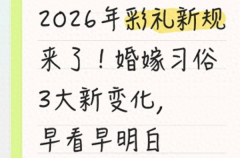 2026年彩礼新规
来了！婚嫁习俗
3大新变化，
早看早明白